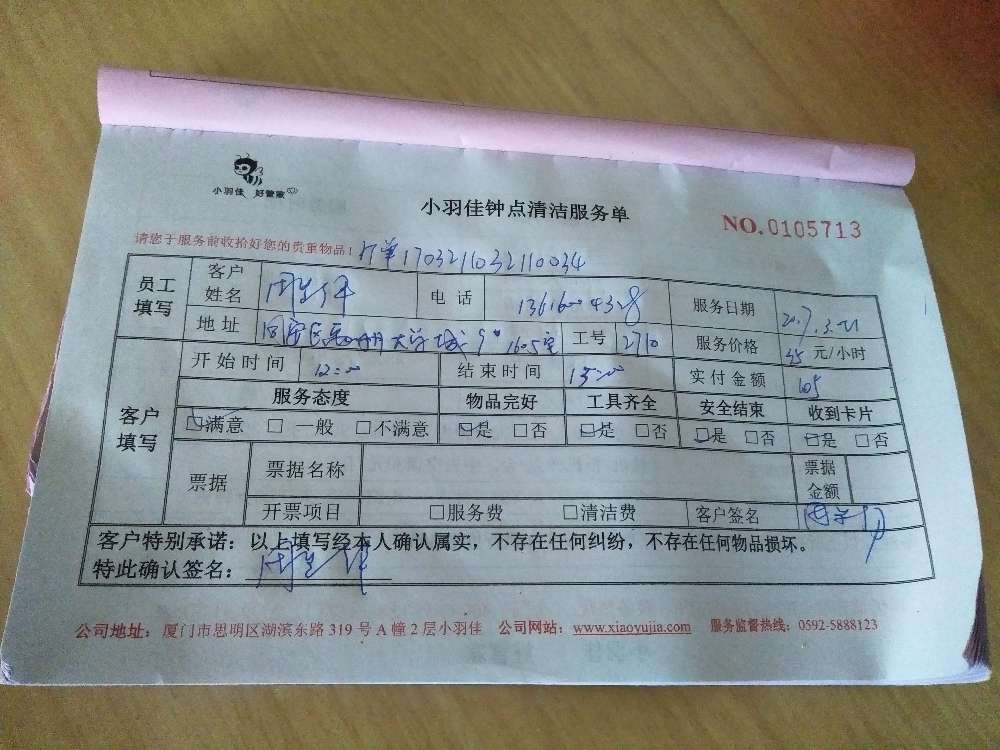 小羽佳 好管家
小羽佳钟点清洁服务单
NO.0105713
请您于服务前收拾好您的贵重物品!
订单1703211032110034
员工填写 客户姓名 电话 服务日期
地址 1605室 工号 2710 服务价格 45 元/小时
客户填写 开始时间 12:00 结束时间 15:00 实付金额 105
服务态度 物品完好 工具齐全 安全结束 收到卡片
☑满意 □ 一般 □不满意 ☑是 □否 ☑是 □否 ☑是 □否 ☑是 □否
票据 票据名称 票据金额
开票项目 □服务费 □清洁费 客户签名
客户特别承诺：以上填写经本人确认属实，不存在任何纠纷，不存在任何物品损坏。
特此确认签名：
公司地址：厦门市思明区湖滨东路 319 号 A 幢 2 层小羽佳 公司网站：www.xiaoyujia.com 服务监督热线：0592-5888123